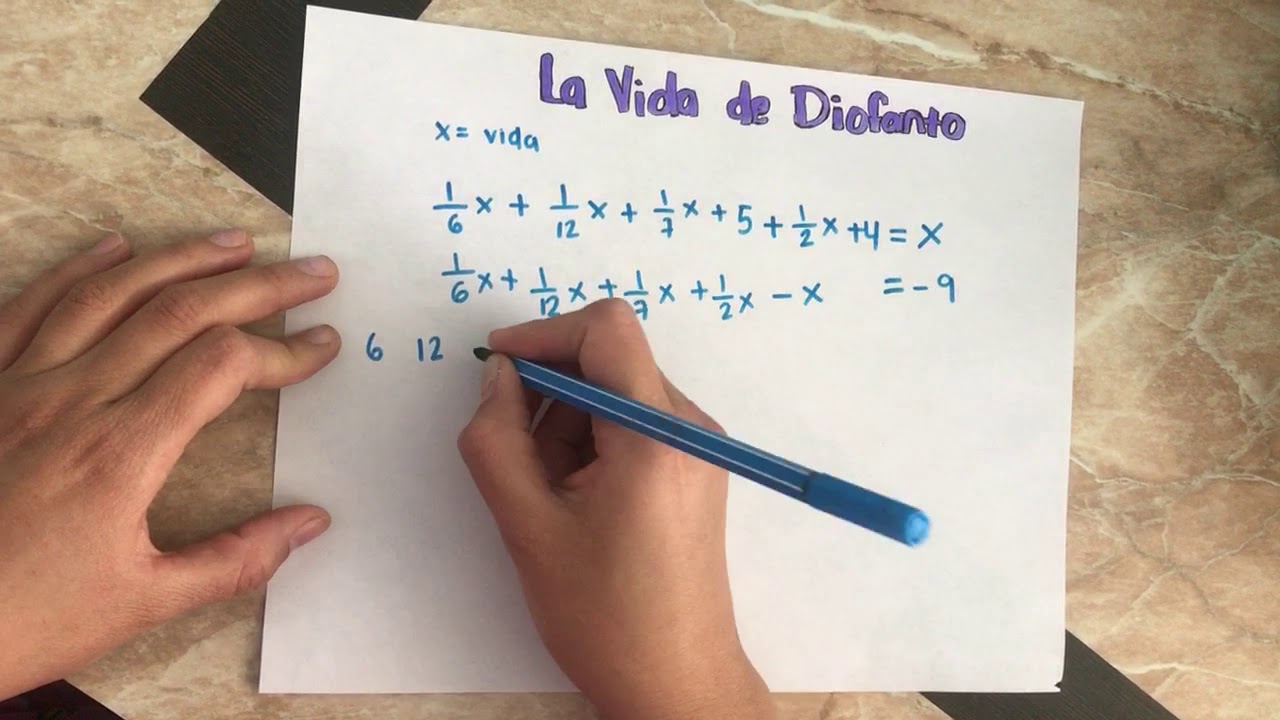 La Vida de Diofanto
x = vida
1/6 x + 1/12 x + 1/7 x + 5 + 1/2 x + 4 = x
1/6 x + 1/12 x + 1/7 x + 1/2 x - x = -9
6 12